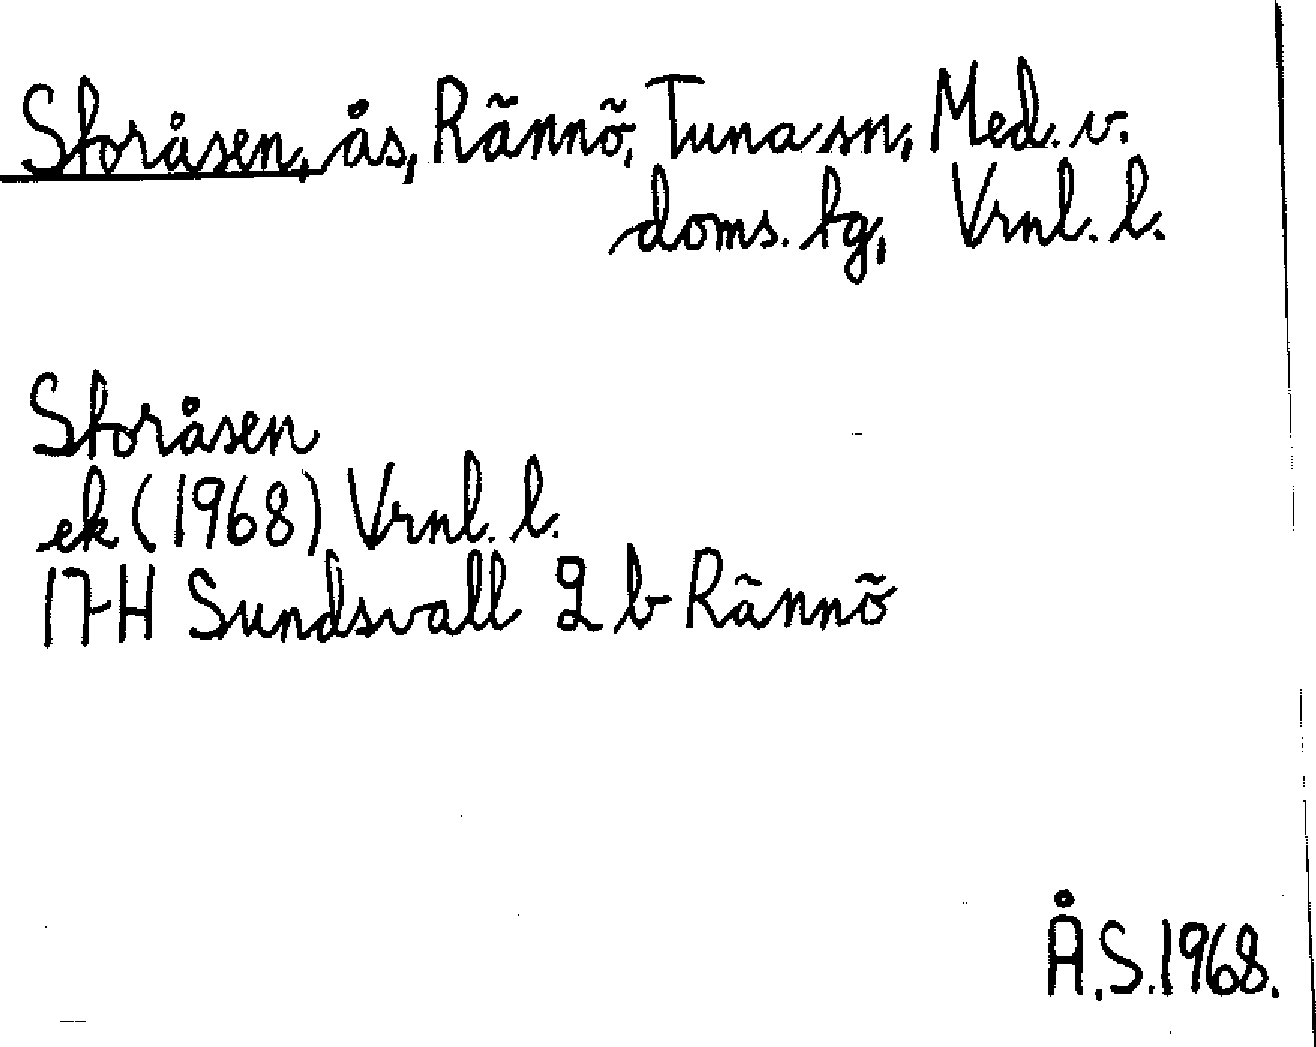 Storåsen, ås, Rännö, Tuna sn, Med. v.
doms. tg, Vrnl. l.
Storåsen
ek (1968) Vrnl. l.
17H Sundsvall 2 b Rännö
Å.S.1968.